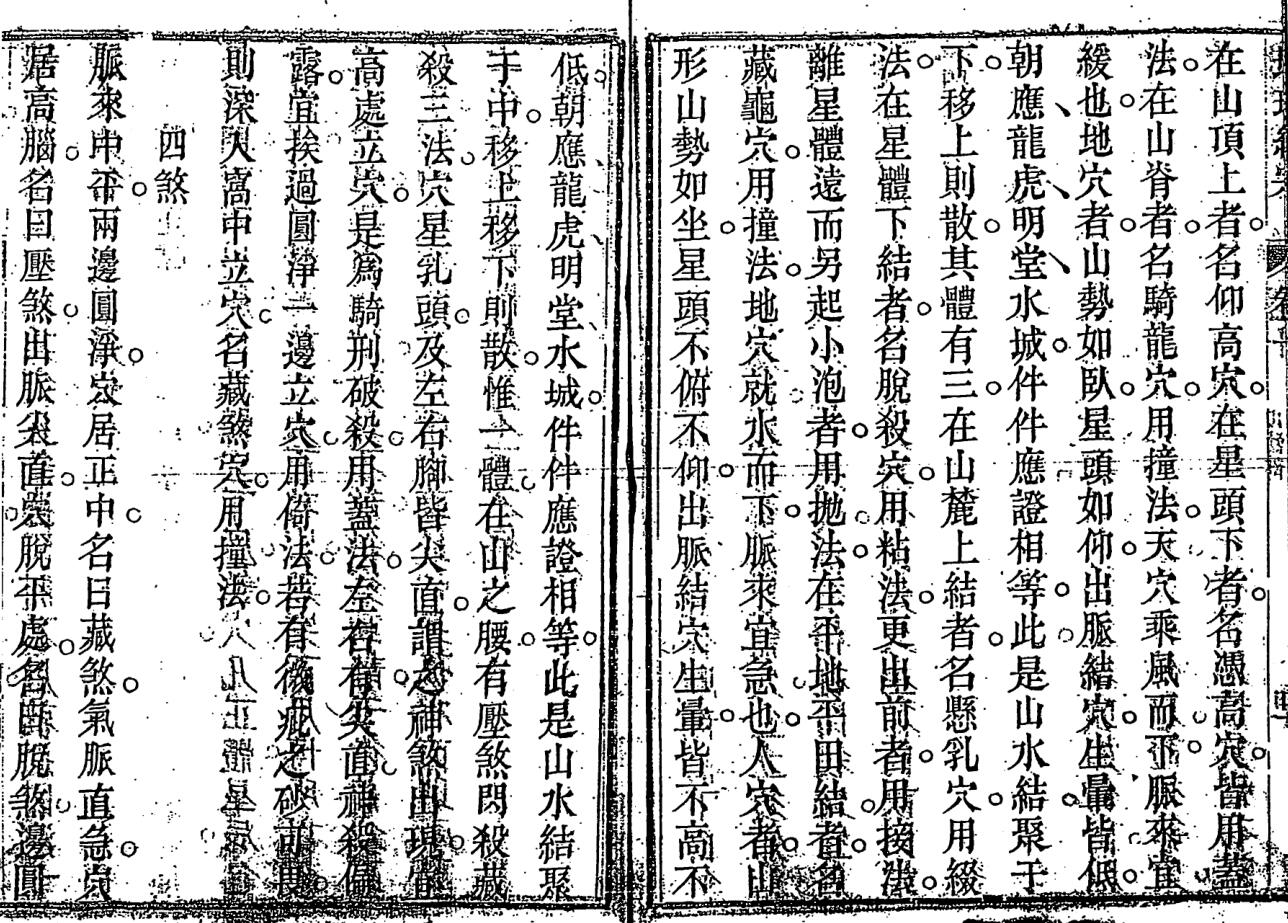 在山頂上者名仰高穴在星頭下者名憑高穴皆用蓋
法在山脊者名騎龍穴用撞法天穴乘風而下脈來宜
緩也地穴者山勢如臥星頭如仰出脈結穴生暈皆低
朝應龍虎明堂水城件件應證相等此是山水結聚于
下移上則散其體有三在山麓上結者名懸乳穴用綴
法在星體下結者名脫殺穴用粘法更出前者用接法
離星體遠而另起小泡者用拋法在平地平田結者名
藏龜穴用撞法地穴就水而下脈來宜急也人穴者山
形山勢如坐星頭不俯不仰出脈結穴生暈皆不高不
低朝應龍虎明堂水城件件應證相等此是山水結聚
于中移上移下則散惟一體在山之腰有壓煞閃殺藏
殺三法穴星乳頭及左右腳皆尖直謂之神煞出現
高處立穴是為騎刑破殺用蓋法左右有尖直神殺偏
露宜挨過圓淨一邊立穴用倚法若有微疵之破可
則深入窩中立穴名藏煞穴用撞法
四煞
脈來中帶兩邊圓淨穴居正中名曰藏煞氣脈直急穴
居高腦名曰壓煞出脈尖直穴脫平處名曰脫煞邊圓